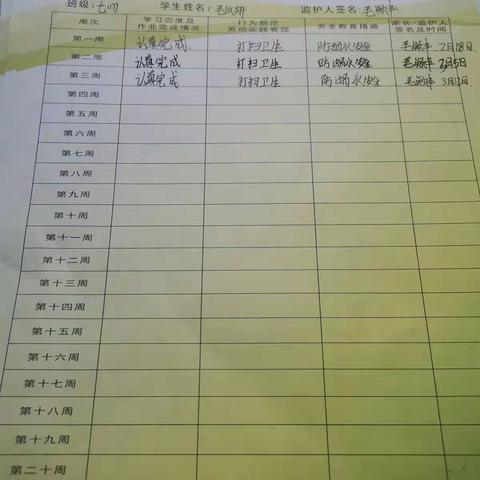 班级: 七(1) 学生姓名: 毛 监护人签名: 毛
周次 学习态度及作业完成情况 行为规范劳动实践表现 安全教育措施 家长/监护人签名及时间
第一周 认真完成. 打扫卫生 防溺水安全 毛 2月28日.
第二周 认真完成 打扫卫生 防溺水安全 毛 3月5日
第三周 认真完成 打扫卫生 防溺水安全 毛 3月12日.
第四周
第五周
第六周
第七周
第八周
第九周
第十周
第十一周
第十二周
第十三周
第十四周
第十五周
第十六周
第十七周
第十八周
第十九周
第二十周